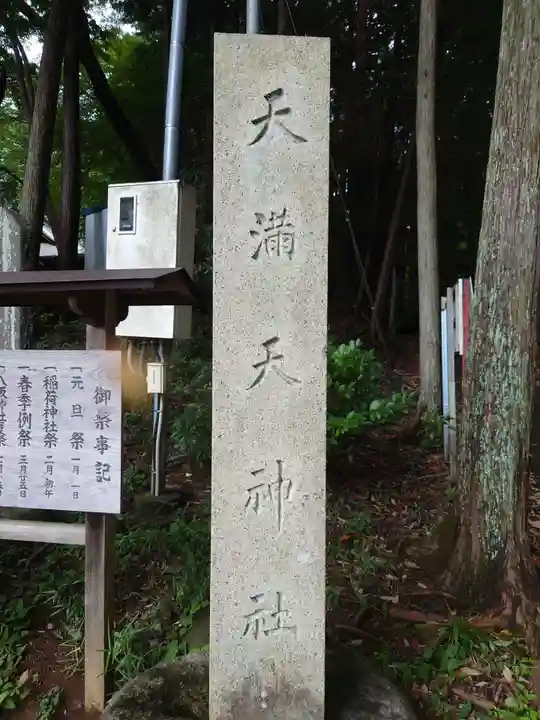 天満天神社
御祭事記
一元旦祭 一月一日
一稲荷神社祭 二月初午
一春季例祭 三月廿五日